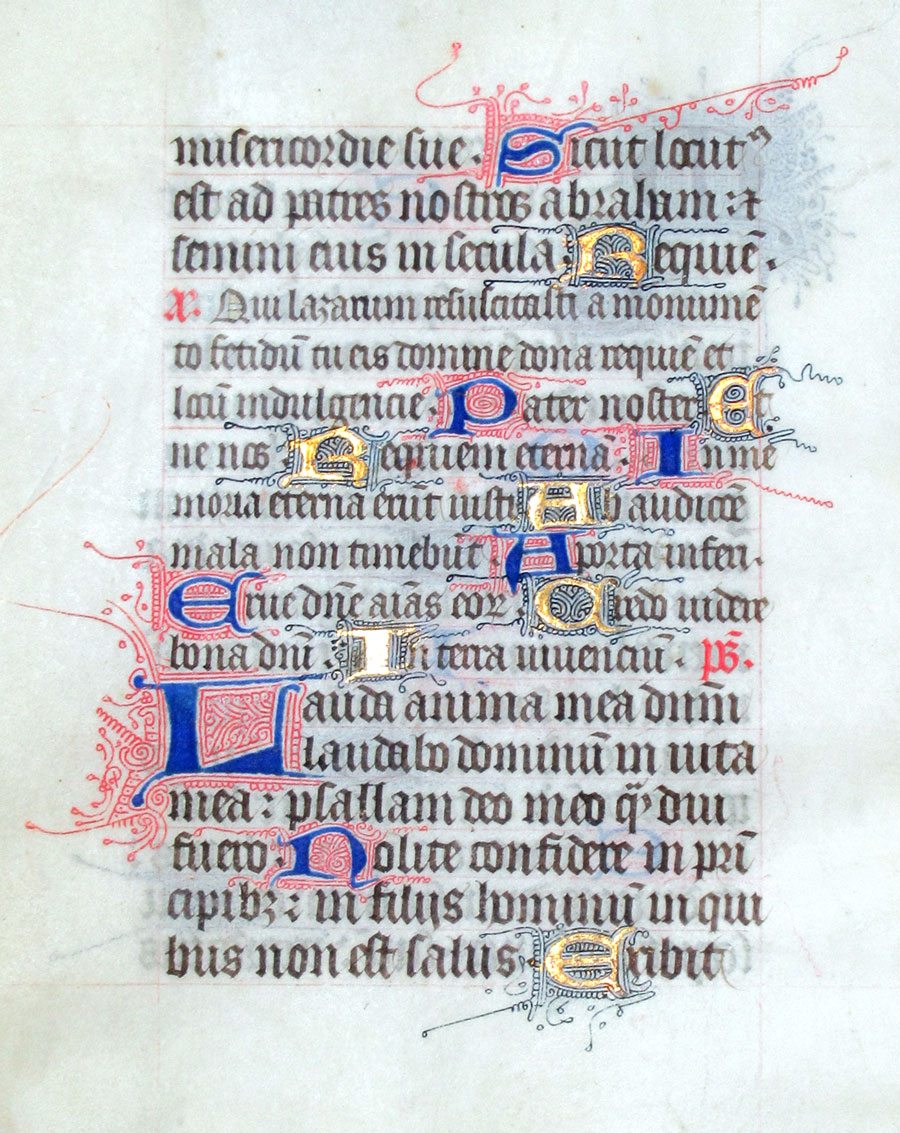 misericordie sue. Sicut locutꝰ
est ad patres nostros abraham ⁊
semini eius in secula. Requiē.
A. Qui lazarum resuscitasti a monumē
to fetidū tu eis domine dona requiē et
locū indulgencie. Pater noster Et
ne nos Requiem eternā. In me
moria eterna erūt iusti Ab audicōē
mala non timebūt. A porta inferi.
Erue dn̄e aīas eoꝝ. Credo videre
bona dn̄i. In terra viuenciū. ps̄.
Lauda anima mea dnm̄
laudabo dominū in vita
mea: psallam deo meo qͣmdiu
fuero. Nolite confidere in pri
cipibꝫ: in filijs hominū in qui
bus non est salus. Exibit